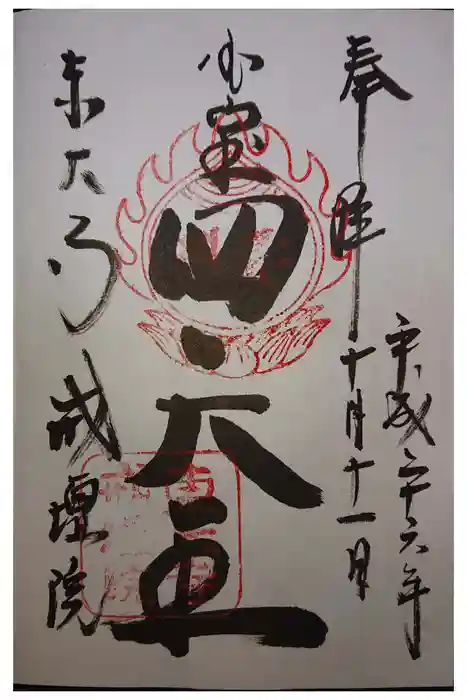 奉拝
平成二十六年
十月十一日
国宝
四天王
東大寺
戒壇院